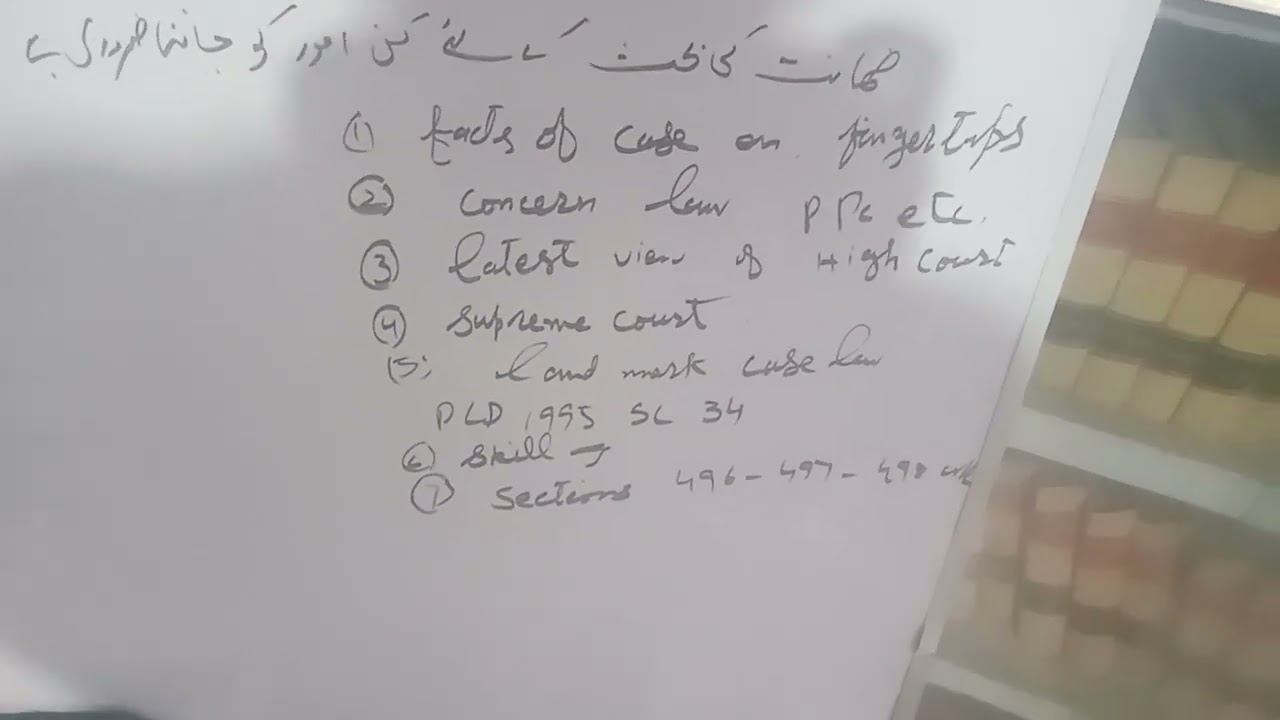 ضمانت کی بحث کے لئے کن امور کو جاننا ضروری ہے
① facts of case on fingertips
② concern law PPC etc.
③ latest view of High court
④ supreme court
(5; land mark case law
PLD 1995 SC 34
⑥ skill →
⑦ sections 496 - 497 - 498